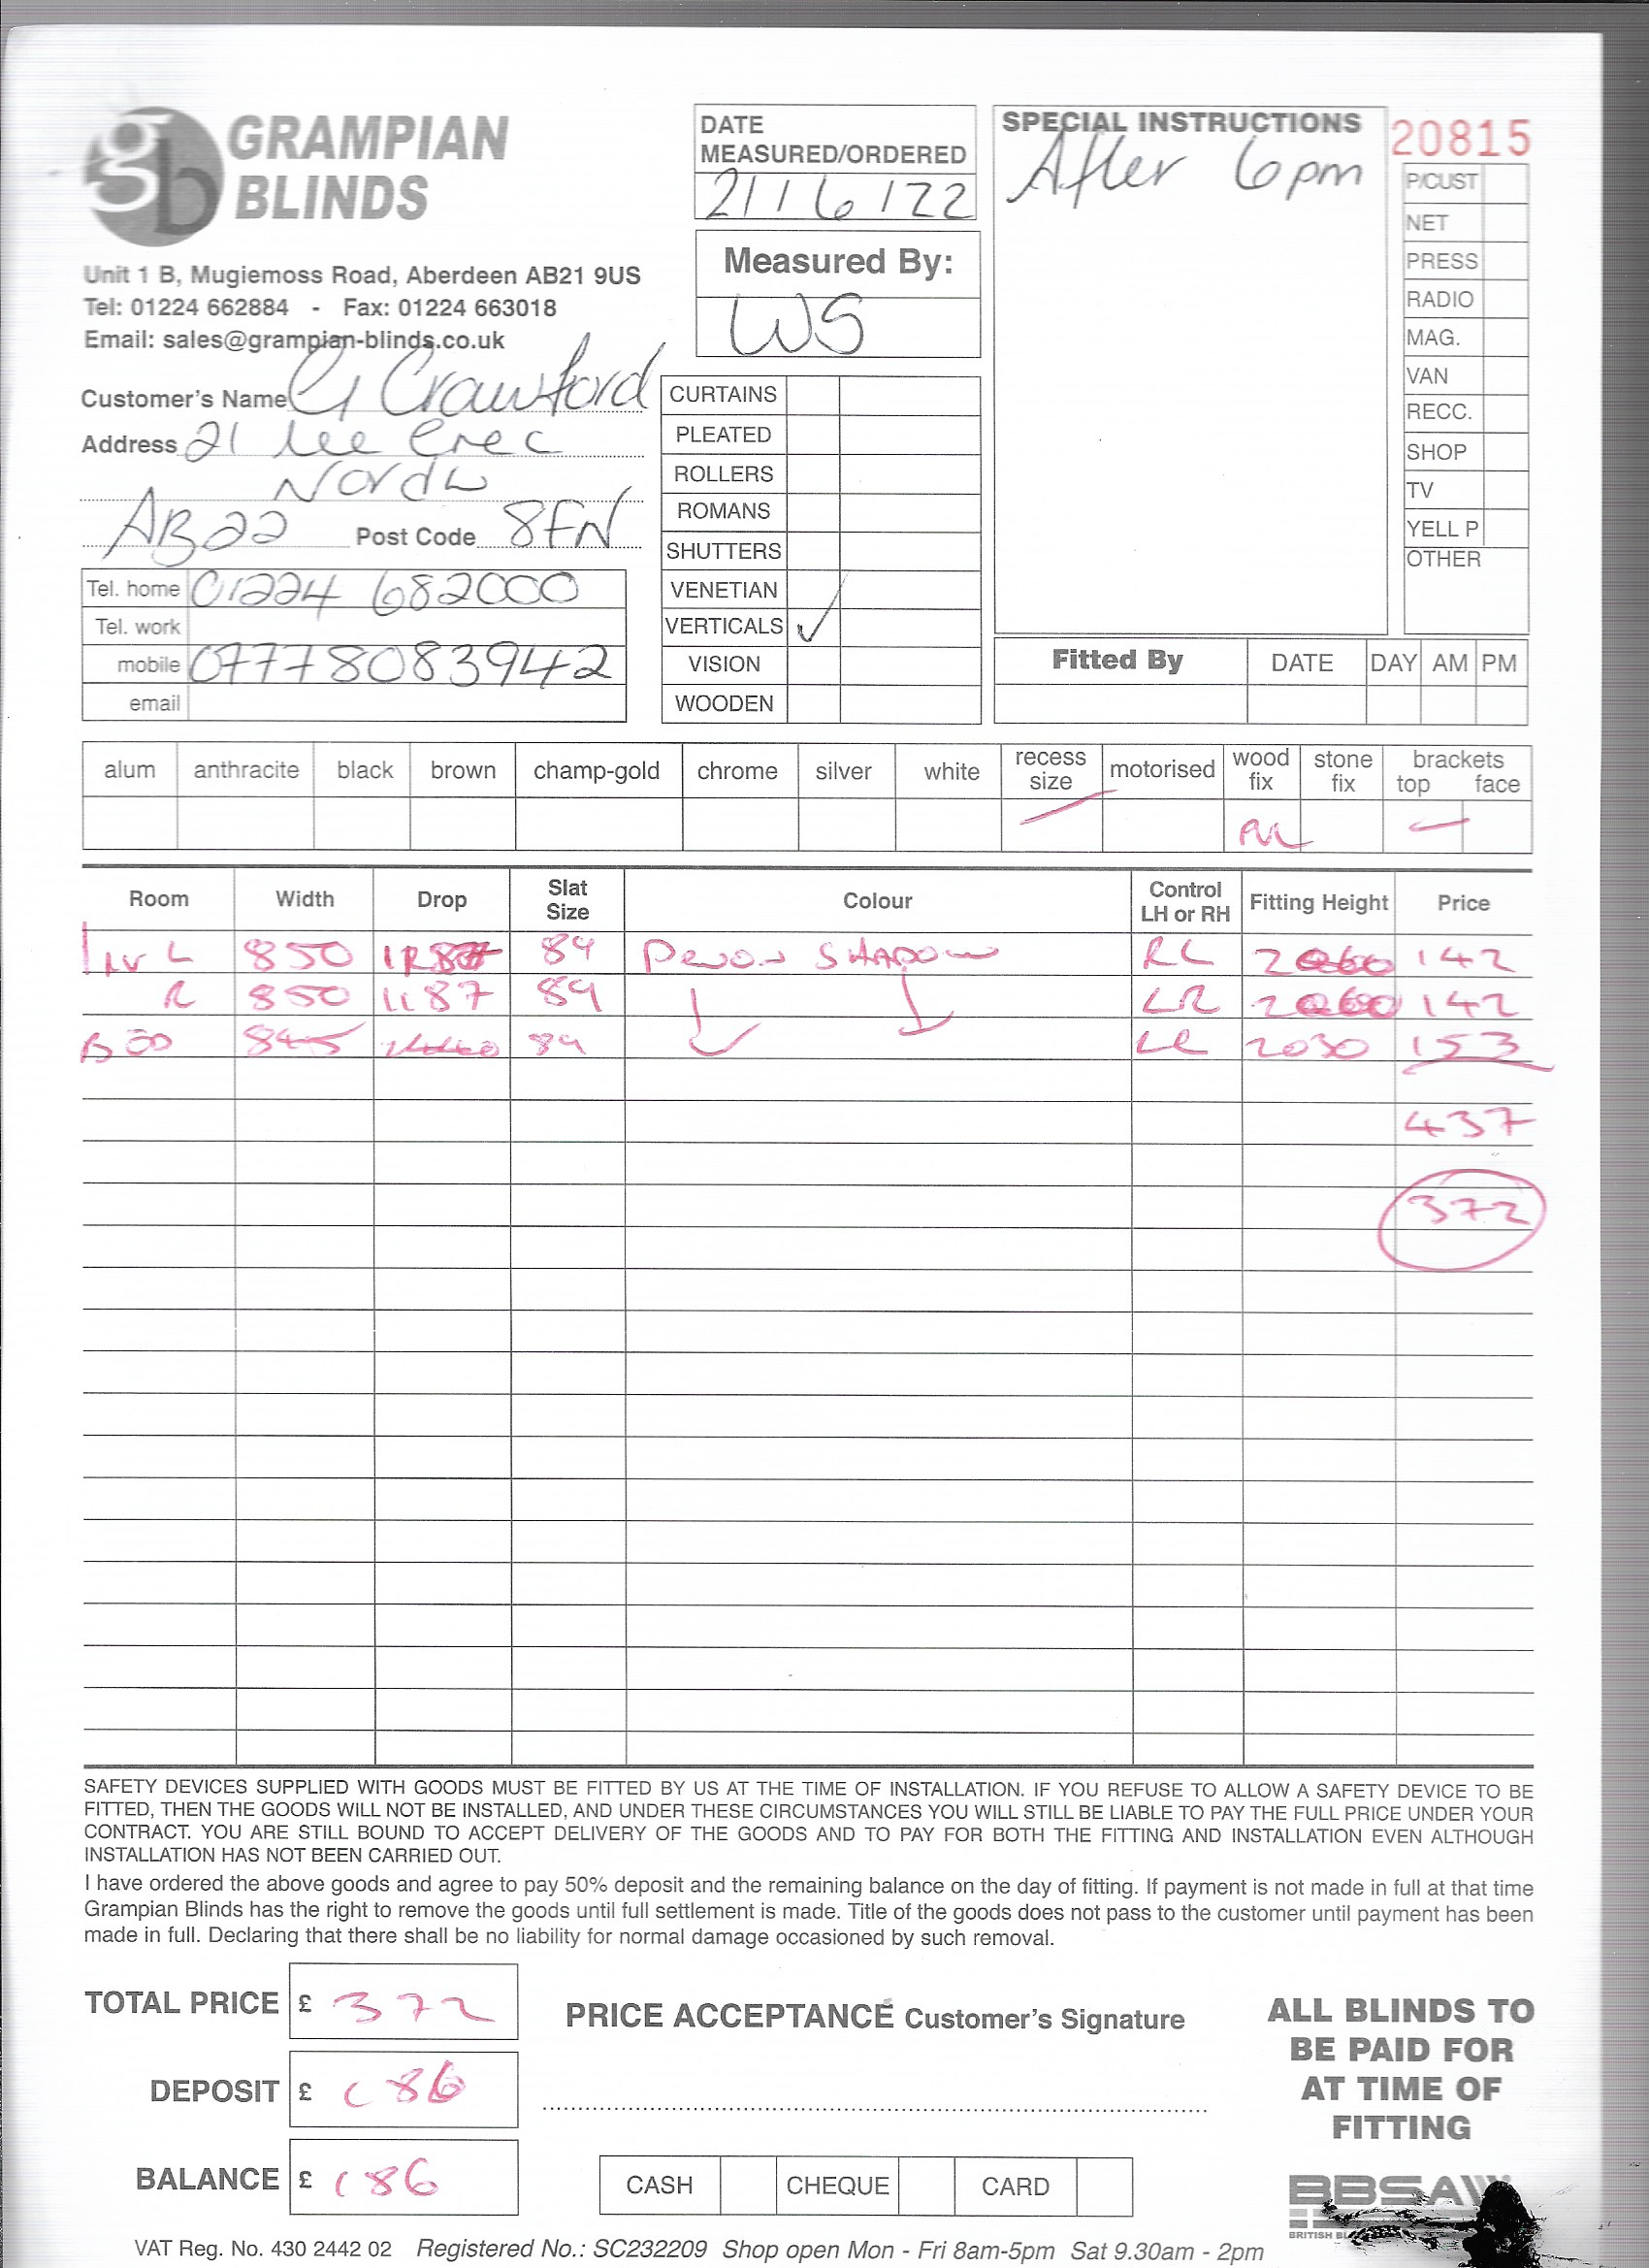 gb GRAMPIAN
BLINDS
Unit 1 B, Mugiemoss Road, Aberdeen AB21 9US
Tel: 01224 662884 - Fax: 01224 663018
Email: sales@grampian-blinds.co.uk
DATE
MEASURED/ORDERED
21/6/22
Measured By:
WS
SPECIAL INSTRUCTIONS
After 6pm
20815
P/CUST
NET
PRESS
RADIO
MAG.
VAN
RECC.
SHOP
TV
YELL P
OTHER
Customer's Name G Crawford
Address 21 Lee Cresc
AB22 Post Code 8FN
Tel. home 01224 682000
Tel. work
mobile 07778083942
email
CURTAINS
PLEATED
ROLLERS
ROMANS
SHUTTERS
VENETIAN
VERTICALS ✓
VISION
WOODEN
Fitted By DATE DAY AM PM
alum anthracite black brown champ-gold chrome silver white recess size motorised wood fix stone fix brackets top face
Room Width Drop Slat Size Colour Control LH or RH Fitting Height Price
L 850 89 DEVON SHADOW RL 142
R 850 1187 89 LR 142
BED 845 89 LR 2030 153
437
372
SAFETY DEVICES SUPPLIED WITH GOODS MUST BE FITTED BY US AT THE TIME OF INSTALLATION. IF YOU REFUSE TO ALLOW A SAFETY DEVICE TO BE
FITTED, THEN THE GOODS WILL NOT BE INSTALLED, AND UNDER THESE CIRCUMSTANCES YOU WILL STILL BE LIABLE TO PAY THE FULL PRICE UNDER YOUR
CONTRACT. YOU ARE STILL BOUND TO ACCEPT DELIVERY OF THE GOODS AND TO PAY FOR BOTH THE FITTING AND INSTALLATION EVEN ALTHOUGH
INSTALLATION HAS NOT BEEN CARRIED OUT.
I have ordered the above goods and agree to pay 50% deposit and the remaining balance on the day of fitting. If payment is not made in full at that time
Grampian Blinds has the right to remove the goods until full settlement is made. Title of the goods does not pass to the customer until payment has been
made in full. Declaring that there shall be no liability for normal damage occasioned by such removal.
TOTAL PRICE £ 372
DEPOSIT £ 186
BALANCE £ 186
PRICE ACCEPTANCE Customer's Signature
CASH CHEQUE CARD
ALL BLINDS TO
BE PAID FOR
AT TIME OF
FITTING
BBSA
BRITISH
VAT Reg. No. 430 2442 02 Registered No.: SC232209 Shop open Mon - Fri 8am-5pm Sat 9.30am - 2pm